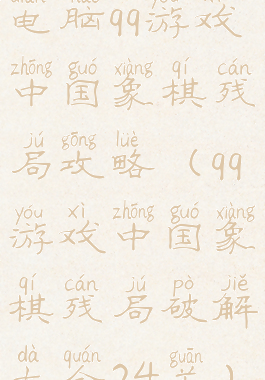 diàn nǎo yóu xì
电脑99游戏
zhōng guó xiàng qí cán
中国象棋残
jú gōng lüè
局攻略（99
yóu xì zhōng guó xiàng
游戏中国象
qí cán jú pò jiě
棋残局破解
dà quán guān
大全24关）